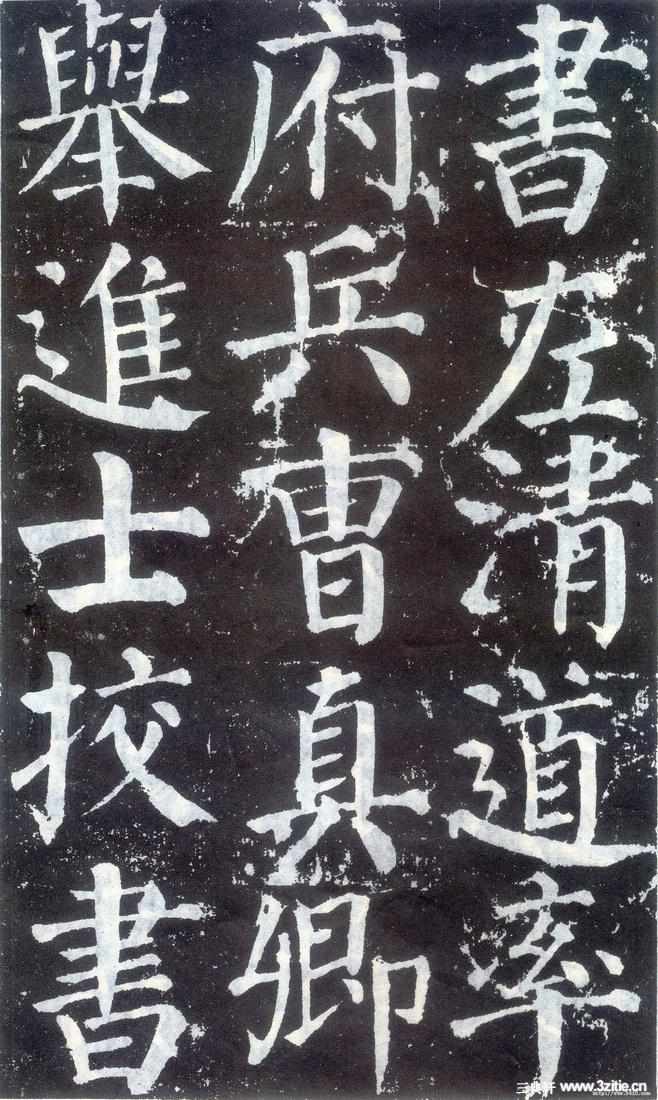 書左清道率
府兵曹真卿
舉進士挍書
三典轩 www.3zitie.cn